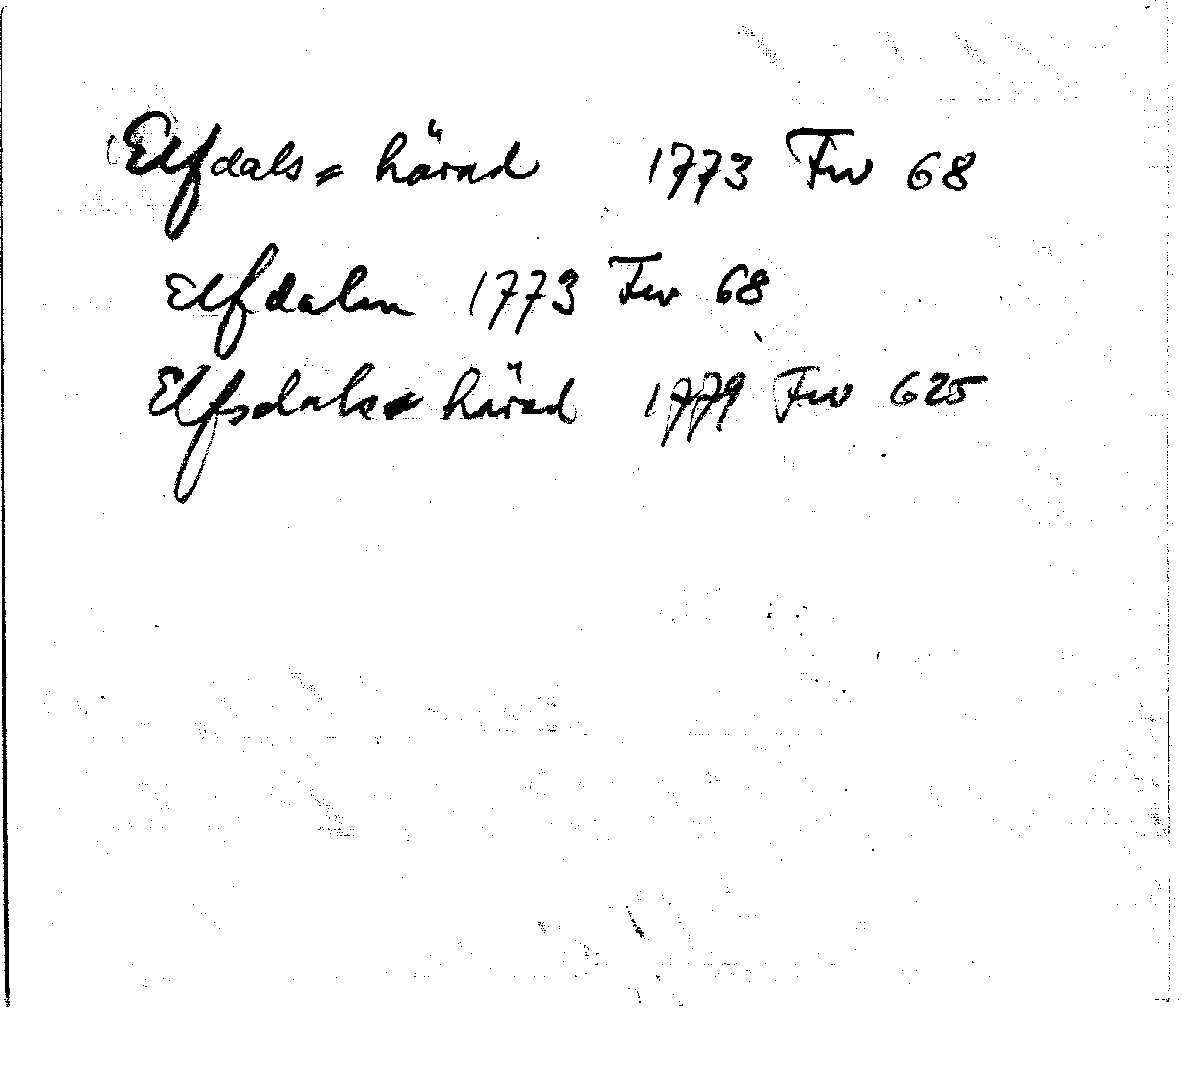 Elfdals= härad 1773 Fw 68
Elfdalen 1773 Fw 68
Elfsdals= härad 1779 Fw 625